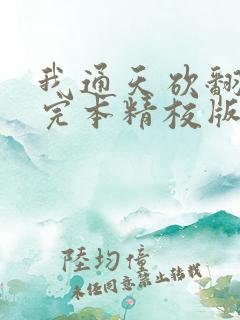 我通天欲翻
完本精校版
陆均僮
未经同意禁止转载